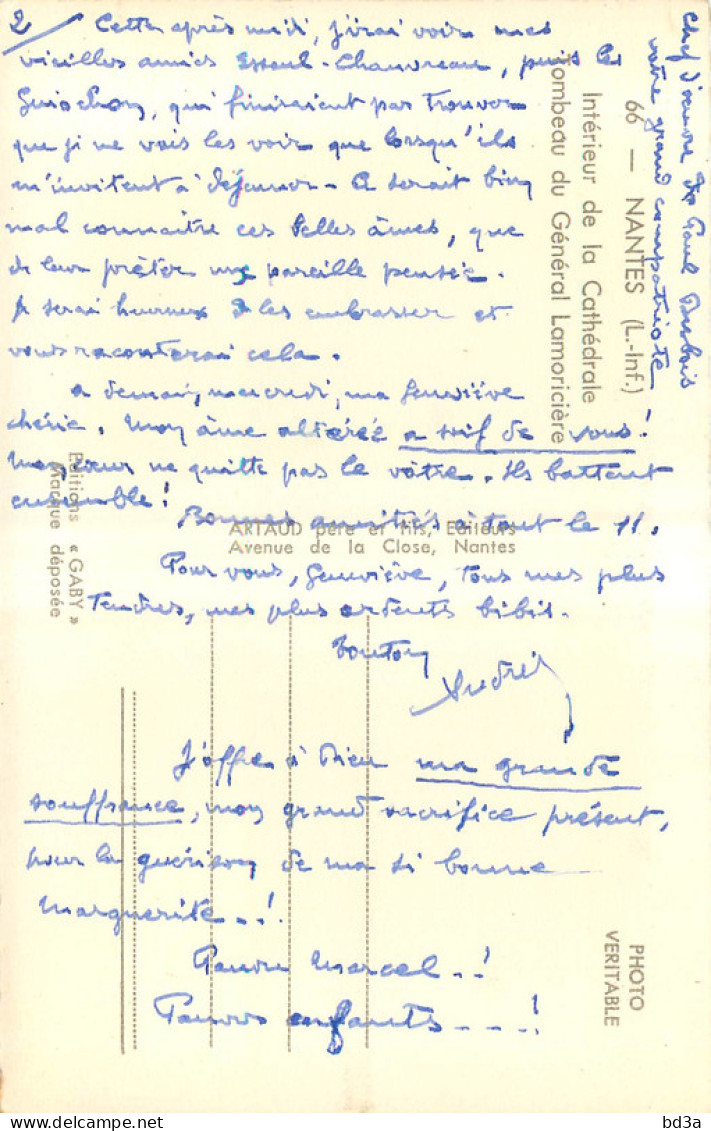 2/ Cette après midi, j'irai voir mes
vieilles amies Essoul-Chauvreau, puis les
Guischon, qui finiraient par trouver
que je ne vais les voir que lorsqu'ils
m'invitent à déjeuner - Ce serait bien
mal connaître ces belles âmes, que
de leur prêter une pareille pensée.
Je serai heureux de les embrasser et
vous raconterai cela.
A demain, mercredi, ma Geneviève
chérie. Mon âme altérée a soif de vous!
Mon cœur ne quitte pas le vôtre. Ils battent
ensemble!
Bonnes amitiés à tout le 11.
Pour vous, Geneviève, tous mes plus
tendres, mes plus ardents bibis.
Tonton
André
J'offre à Dieu ma grande
souffrance, mon grand sacrifice présent,
pour la guérison de ma si bonne
Marguerite - - !
Pauvre Marcel - - !
Pauvres enfants - - - !
Chef d'œuvre de Paul Dubois
votre grand compatriote
66 — NANTES (L.-Inf.)
Intérieur de la Cathédrale
Tombeau du Général Lamoricière
Editions « GABY »
Marque déposée
ARTAUD père et fils, Editeurs
Avenue de la Close, Nantes
PHOTO
VERITABLE
bd3a